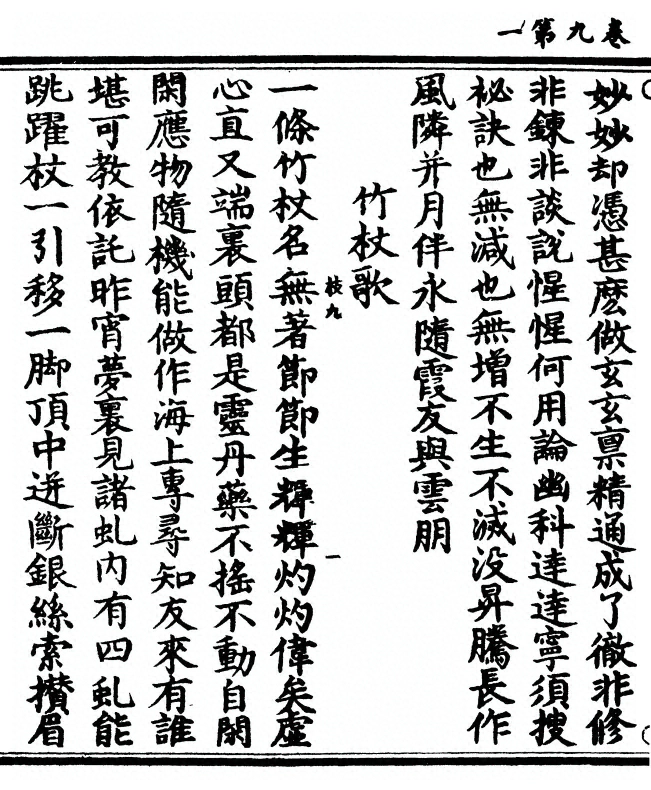 卷九第一
妙妙却憑甚麽做玄玄禀精通成了徹非修
非鍊非談說惺惺何用論幽科達達寧須搜
祕訣也無減也無增不生不滅没昇騰長作
風隣并月伴永隨霞友與雲朋
竹杖歌
一條竹杖名無著節節生輝輝灼灼偉矣虛
心直又端裏頭都是靈丹藥不搖不動自閑
閑應物隨機能做作海上專尋知友來有誰
堪可教依託昨宵夢裏見諸虬内有四虬能
跳躍杖一引移一脚頂中迸斷銀絲索攅眉
枝九
一